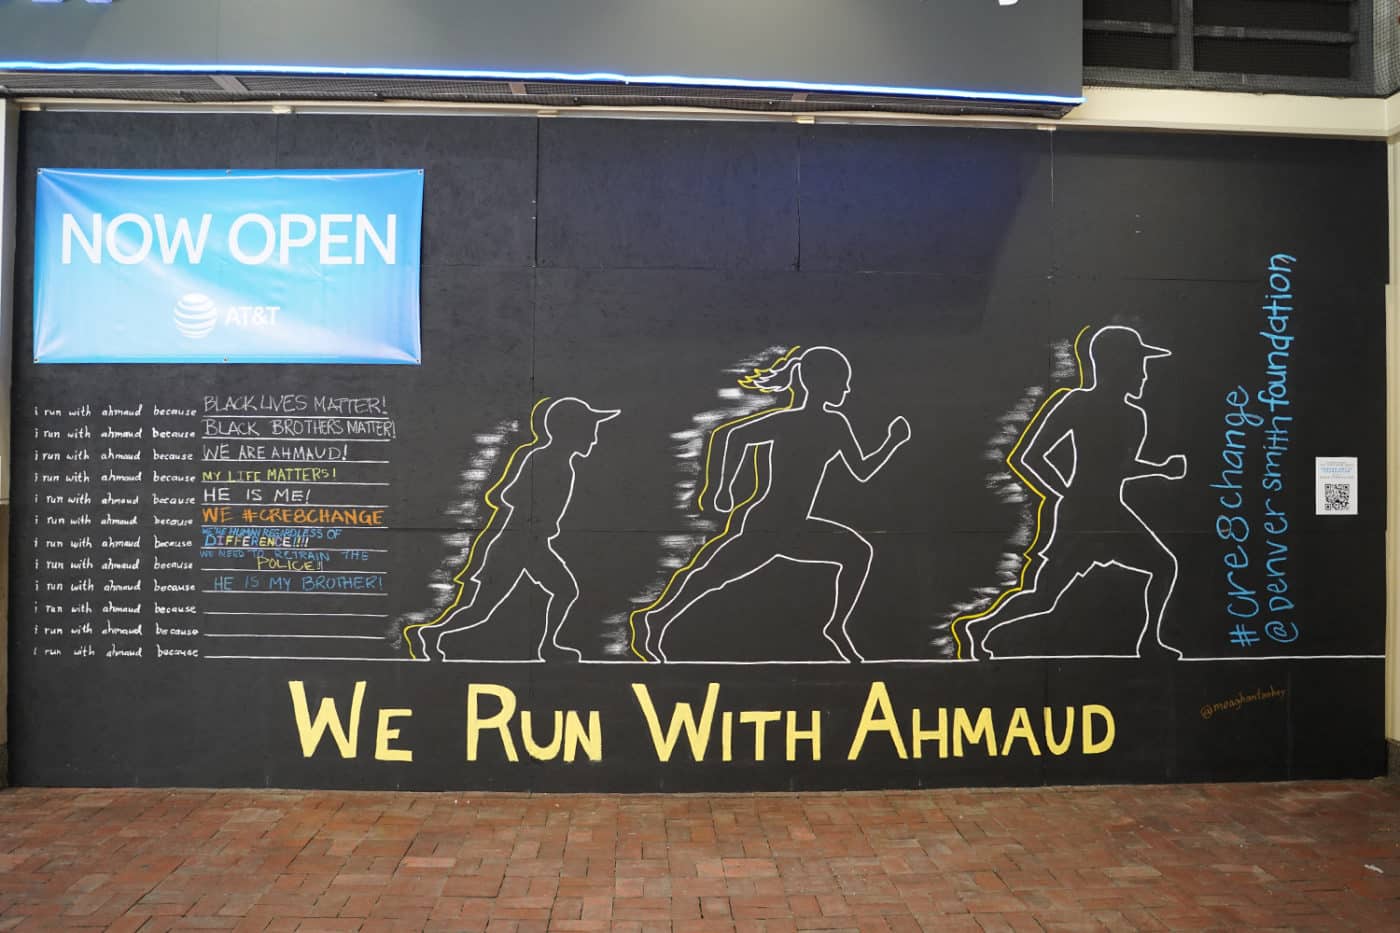 NOW OPEN
AT&T
i run with ahmaud because BLACK LIVES MATTER!
i run with ahmaud because BLACK BROTHERS MATTER!
i run with ahmaud because WE ARE AHMAUD!
i run with ahmaud because MY LIFE MATTERS!
i run with ahmaud because HE IS ME!
i run with ahmaud because WE #CRE8CHANGE
i run with ahmaud because WE'RE HUMAN REGARDLESS OF
DIFFERENCE!!!
i run with ahmaud because WE NEED TO RETRAIN THE
POLICE!
i run with ahmaud because HE IS MY BROTHER!
i run with ahmaud because
i run with ahmaud because
i run with ahmaud because
#cre8change
@DENVERsmithfoundation
@meaghantoohey
WE RUN WITH AHMAUD